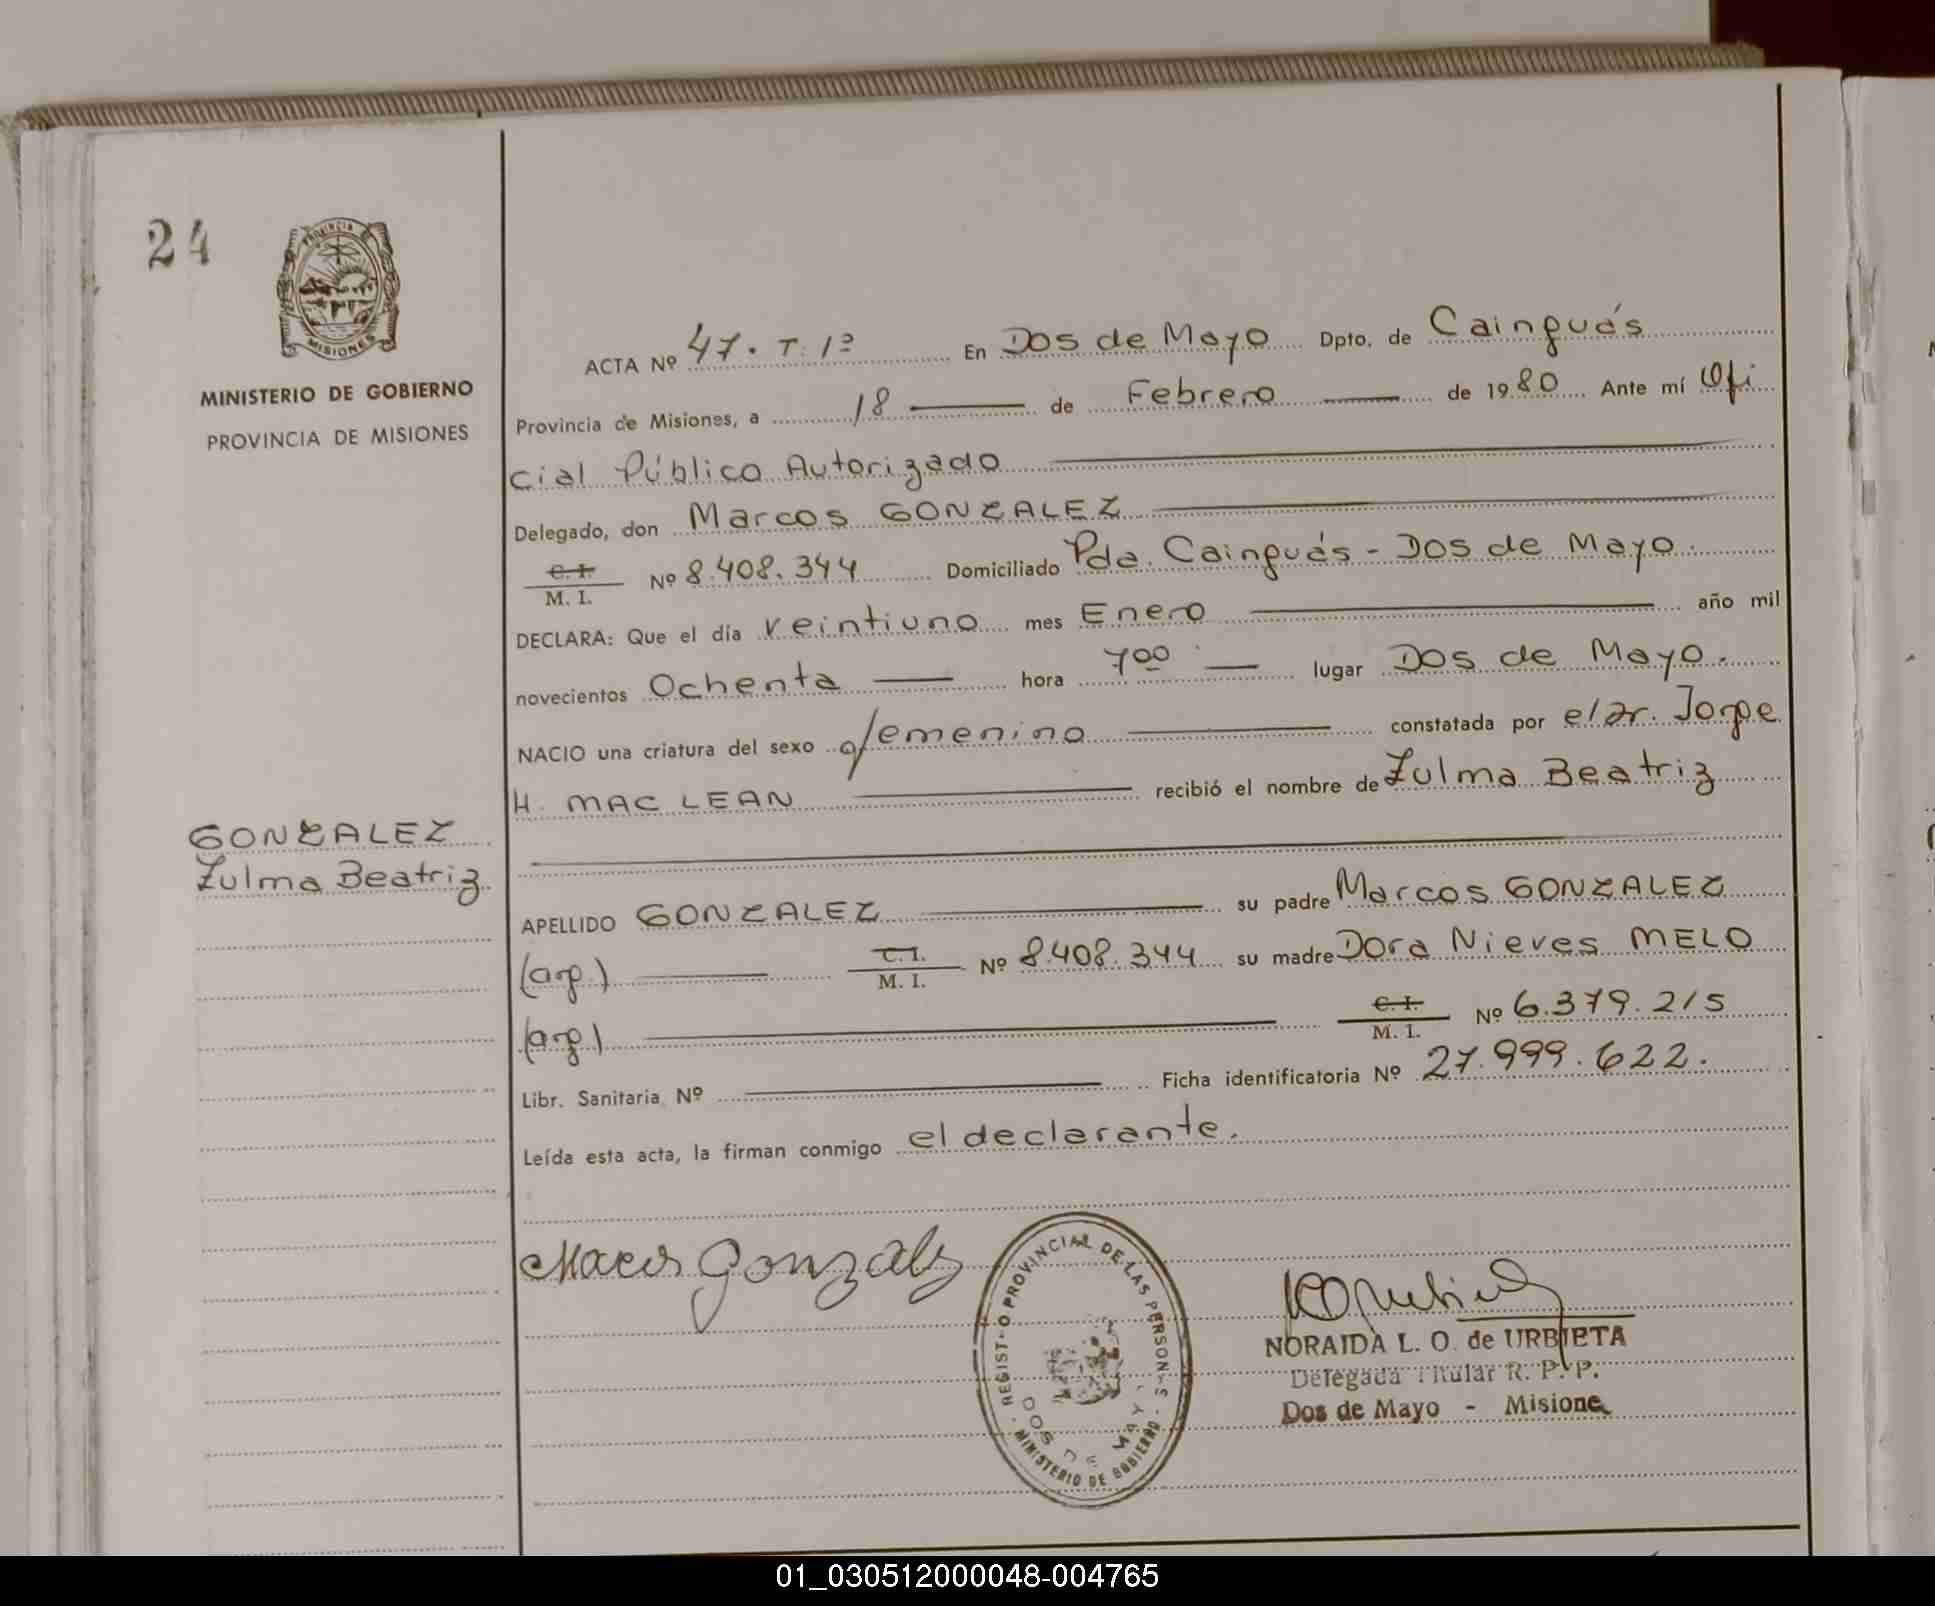 24
PROVINCIA
MISIONES
MINISTERIO DE GOBIERNO
PROVINCIA DE MISIONES
ACTA Nº 47. T. 1º En Dos de Mayo Dpto. de Cainguás
Provincia de Misiones, a 18 de Febrero de 1980 Ante mí Ofi
cial Público Autorizado
Delegado, don Marcos GONZALEZ
C. I. Nº 8.408.344 Domiciliado Pda. Cainguás - Dos de Mayo.
M. I.
DECLARA: Que el día veintiuno mes Enero año mil
novecientos Ochenta hora 7oo lugar Dos de Mayo.
NACIO una criatura del sexo femenino constatada por el Jorge
H. MAC LEAN recibió el nombre de Zulma Beatriz
GONZALEZ
Zulma Beatriz
APELLIDO GONZALEZ su padre Marcos GONZALEZ
(arg.) C. I. Nº 8.408.344 su madre Dora Nieves MELO
M. I.
(arg) C. I. Nº 6.379.215
M. I.
Libr. Sanitaria Nº Ficha identificatoria Nº 27.999.622.
Leída esta acta, la firman conmigo el declarante.
Marcos Gonzalez
REGISTRO PROVINCIAL DE LAS PERSONAS
DOS DE MAYO
MINISTERIO DE GOBIERNO
NORAIDA L. O. de URBIETA
Delegada Titular R. P. P.
Dos de Mayo - Misiones
01_030512000048-004765